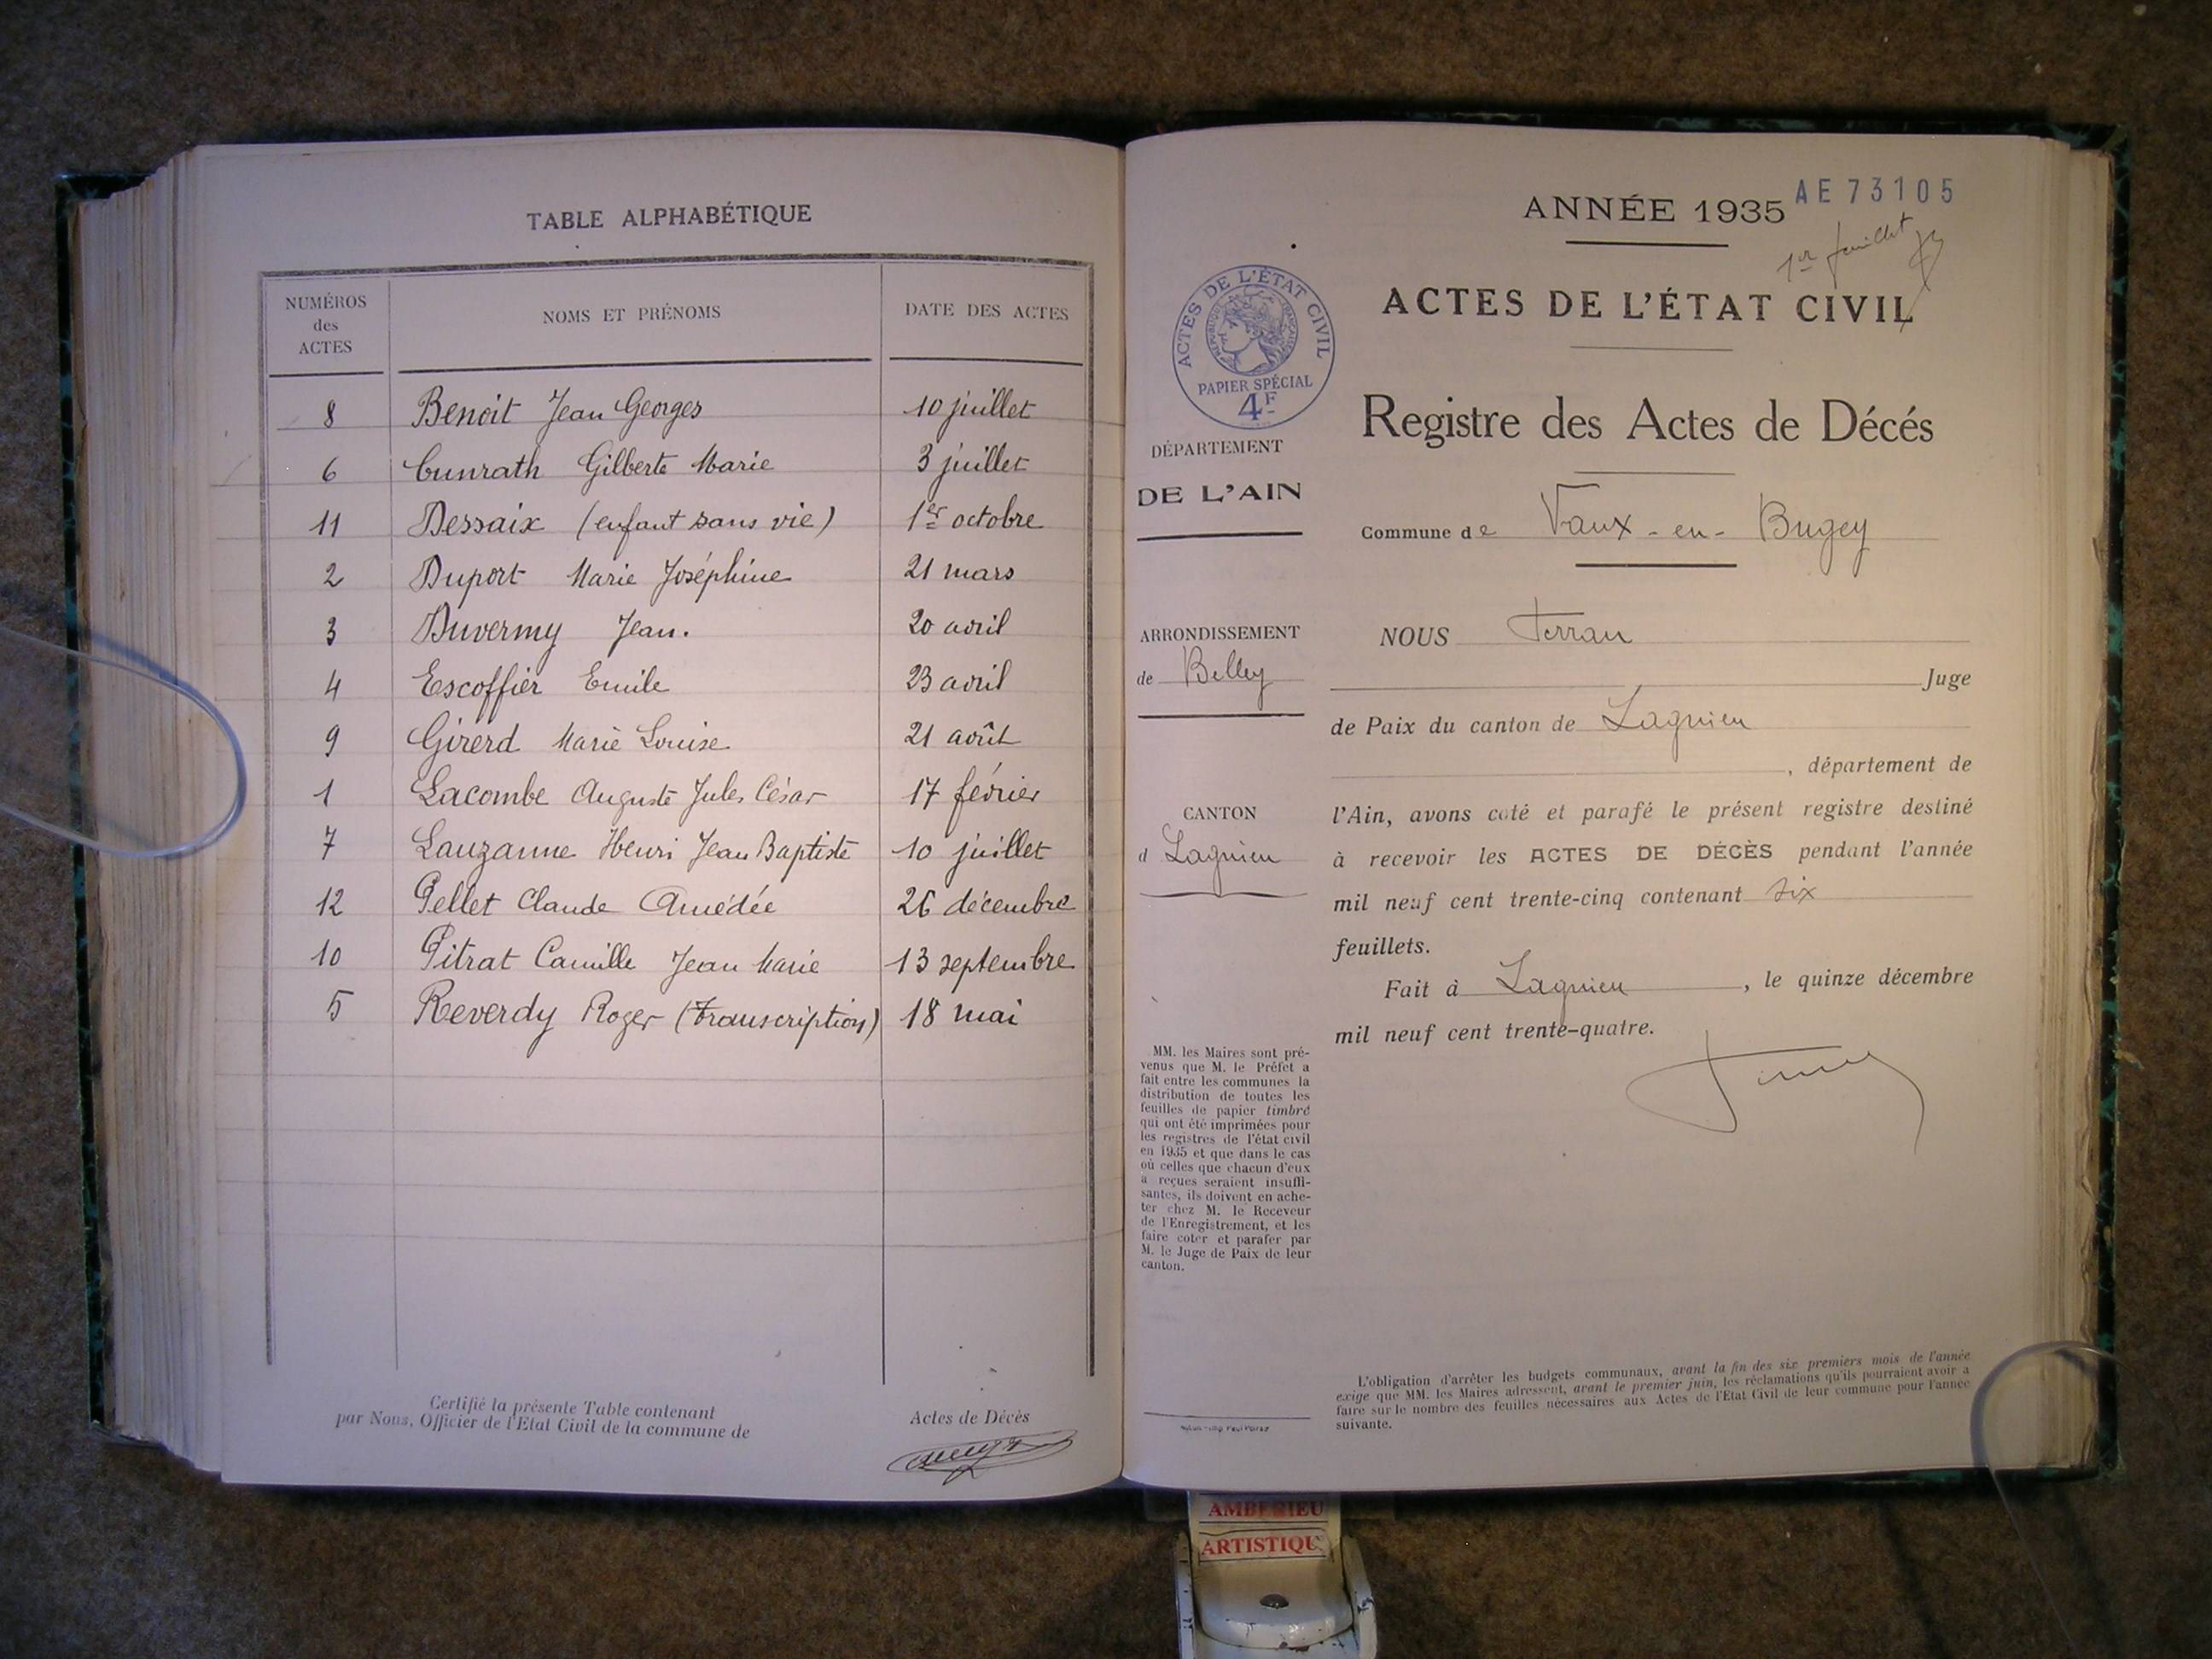 TABLE ALPHABÉTIQUE
NUMÉROS des ACTES NOMS ET PRÉNOMS DATE DES ACTES
8 Benoit Jean Georges 10 juillet
6 Cunrath Gilberte Marie 3 juillet
11 Dessaix (enfant sans vie) 1er octobre
2 Duport Marie Joséphine 21 mars
3 Duvermy Jean. 20 avril
4 Escoffier Emile 23 avril
9 Girerd Marie Louise 21 août
1 Lacombe Auguste Jules César 17 février
7 Lauzanne Henri Jean Baptiste 10 juillet
12 Pellet Claude Amédée 26 décembre
10 Pitrat Camille Jean Marie 13 septembre
5 Reverdy Roger (transcription) 18 mai
Certifié la présente Table contenant Actes de Décès
par Nous, Officier de l'Etat Civil de la commune de
ANNÉE 1935
AE 73105
1er feuillet
ACTES DE L'ÉTAT CIVIL
ACTES DE L'ÉTAT CIVIL
RÉPUBLIQUE FRANÇAISE
PAPIER SPÉCIAL
4F
Registre des Actes de Décés
DÉPARTEMENT
DE L'AIN
Commune de Vaux-en-Bugey
ARRONDISSEMENT
de Belley
CANTON
d Lagnieu
NOUS Ferran
Juge
de Paix du canton de Lagnieu
, département de
l'Ain, avons coté et parafé le présent registre destiné
à recevoir les ACTES DE DÉCÈS pendant l'année
mil neuf cent trente-cinq contenant six
feuillets.
Fait à Lagnieu, le quinze décembre
mil neuf cent trente-quatre.
MM. les Maires sont pré-
venus que M. le Préfet a
fait entre les communes la
distribution de toutes les
feuilles de papier timbré
qui ont été imprimées pour
les registres de l'état civil
en 1935 et que dans le cas
où celles que chacun d'eux
a reçues seraient insuffi-
santes, ils doivent en ache-
ter chez M. le Receveur
de l'Enregistrement, et les
faire coter et parafer par
M. le Juge de Paix de leur
canton.
L'obligation d'arrêter les budgets communaux, avant la fin des six premiers mois de l'année
exige que MM. les Maires adressent, avant le premier juin, les réclamations qu'ils pourraient avoir a
faire sur le nombre des feuilles nécessaires aux Actes de l'Etat Civil de leur commune pour l'année
suivante.
AMBERIEU
ARTISTIQU